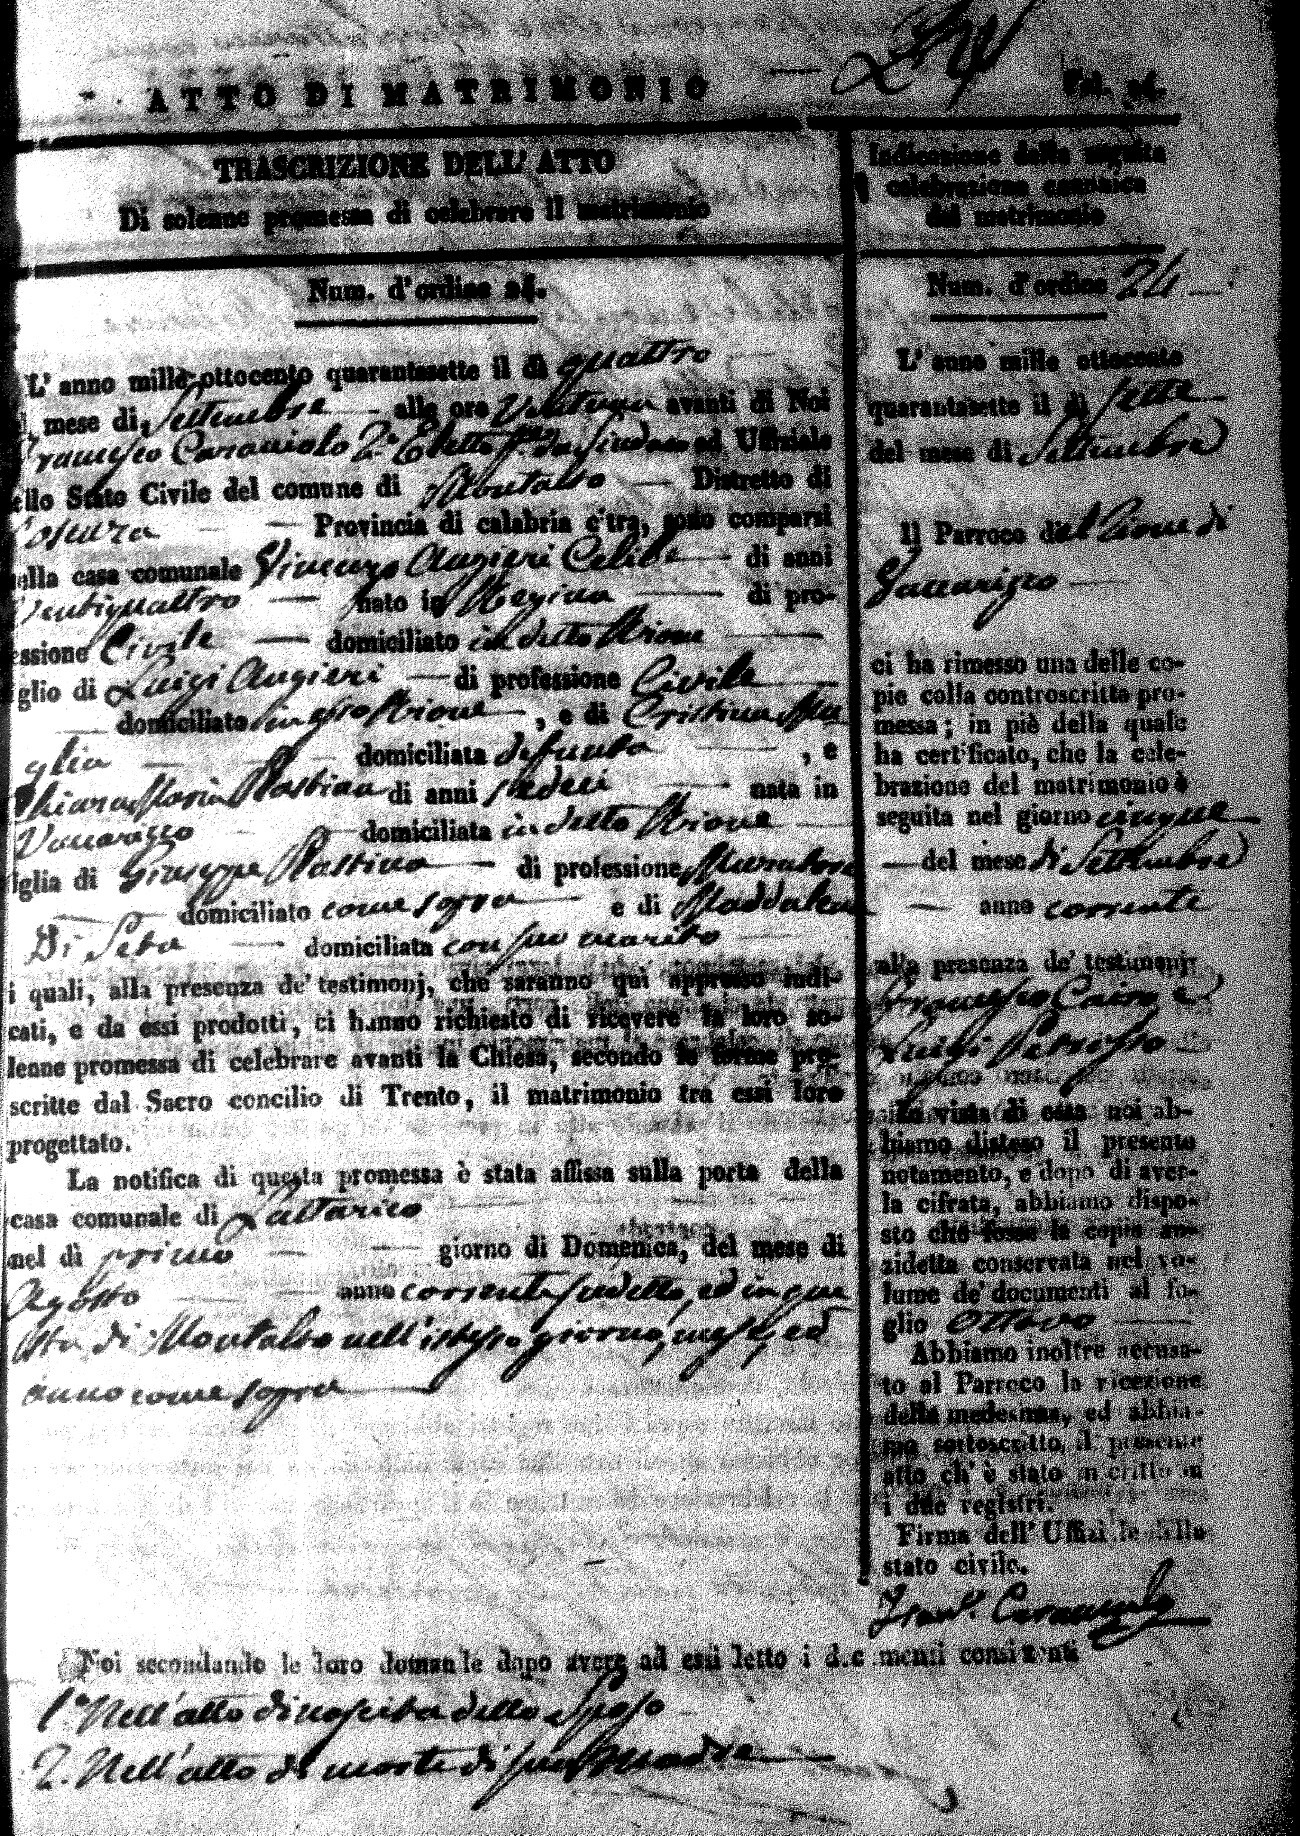 ATTO DI MATRIMONIO
Fol. 24.
TRASCRIZIONE DELL' ATTO
Di solenne promessa di celebrare il matrimonio
Num. d'ordine 24.
L' anno mille ottocento quarantasette il dì quattro
mese di Settembre alle ore avanti di Noi
Francesco Caracciolo 2.° Eletto ed Uffiziale
ello Stato Civile del comune di Montalto Distretto di
Cosenza Provincia di calabria c'tra, sono comparsi
nella casa comunale Vincenzo Augieri Celibe di anni
Ventiquattro nato in Regina di pro-
essione Civile domiciliato in detto Rione
iglio di Luigi Augieri di professione Civile
domiciliato in esso Rione, e di Cristina Ma
glia domiciliata defunta, e
Chiara Maria Plastina di anni sedeci nata in
Vaccarizzo domiciliata in detto Rione
iglia di Giuseppe Plastina di professione Muratore
domiciliato come sopra e di Maddalena
Di Seta domiciliata con suo marito
i quali, alla presenza de' testimonj, che saranno quì appresso indi-
cati, e da essi prodotti, ci hanno richiesto di ricevere la loro so-
lenne promessa di celebrare avanti la Chiesa, secondo le forme pre-
scritte dal Sacro concilio di Trento, il matrimonio tra essi loro
progettato.
La notifica di questa promessa è stata affissa sulla porta della
casa comunale di Lattarico
nel dì primo giorno di Domenica, del mese di
Agosto anno corrente sudetto, ed in que
sta di Montalto nell'istesso giorno, mese, ed
anno come sopra
Indicazione della seguita
celebrazione canonica
del matrimonio
Num. d'ordine 24
L' anno mille ottocento
quarantasette il dì sette
del mese di Settembre
Il Parroco del Rione di
Vaccarizzo
ci ha rimesso una delle co-
pie colla controscritta pro-
messa; in piè della quale
ha certificato, che la cele-
brazione del matrimonio è
seguita nel giorno cinque
del mese di Settembre
anno corrente
alla presenza de' testimonj
Francesco Cairo e
Luigi Petrasso
In vista di essa noi ab-
biamo disteso il presente
notamento, e dopo di aver-
la cifrata, abbiamo dispo-
sto che fosse la copia an-
zidetta conservata nel vo-
lume de' documenti al fo-
glio ottavo
Abbiamo inoltre accusa-
to al Parroco la ricezione
della medesima, ed abbia-
mo sottoscritto il presente
atto ch' è stato inscritto su
i due registri.
Firma dell' Uffiziale dello
stato civile.
Franc.° Caracciolo
Noi secondando le loro domande dopo avere ad essi letto i documenti consistenti
1.° Nell'atto di nascita dello Sposo
2. Nell'atto di morte di sua Madre